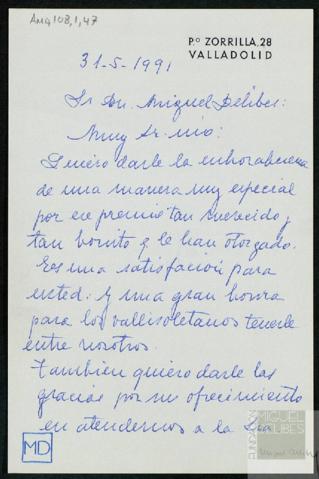 AMD,108,1,47
Pº ZORRILLA, 28
VALLADOLID
31-5-1991
Sr Dn. Miguel Delibes:
Muy Sr. mio:
Quiero darle la enhorabuena
de una manera muy especial
por ese premio tan merecido y
tan bonito q le han otorgado.
Es una satisfacción para
usted: y una gran honra
para los vallisoletanos tenerle
entre nosotros.
También quiero darle las
gracias por su ofrecimiento
en atendernos a la
MD
FUNDACIÓN
MIGUEL
DELIBES